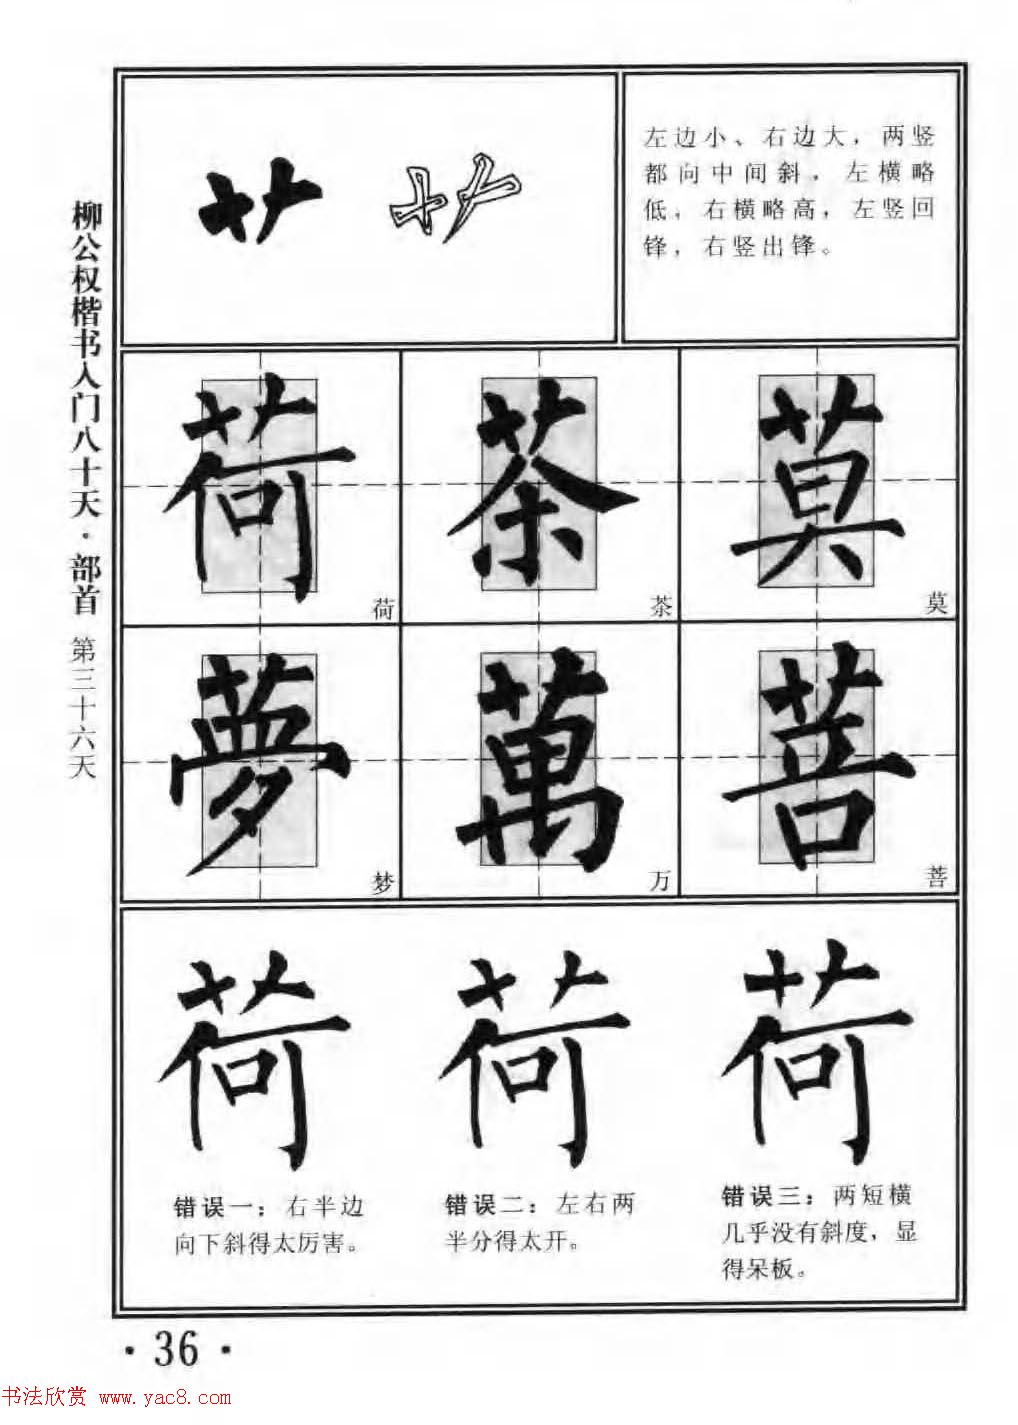 柳公权楷书入门八十天·部首 第三十六天
艹
左边小、右边大，两竖
都向中间斜，左横略
低，右横略高，左竖回
锋，右竖出锋。
荷 茶 莫
荷 茶 莫
夢 萬 菩
梦 万 菩
荷 荷 荷
错误一：右半边
向下斜得太厉害。
错误二：左右两
半分得太开。
错误三：两短横
几乎没有斜度，显
得呆板。
·36·
书法欣赏 www.yac8.com